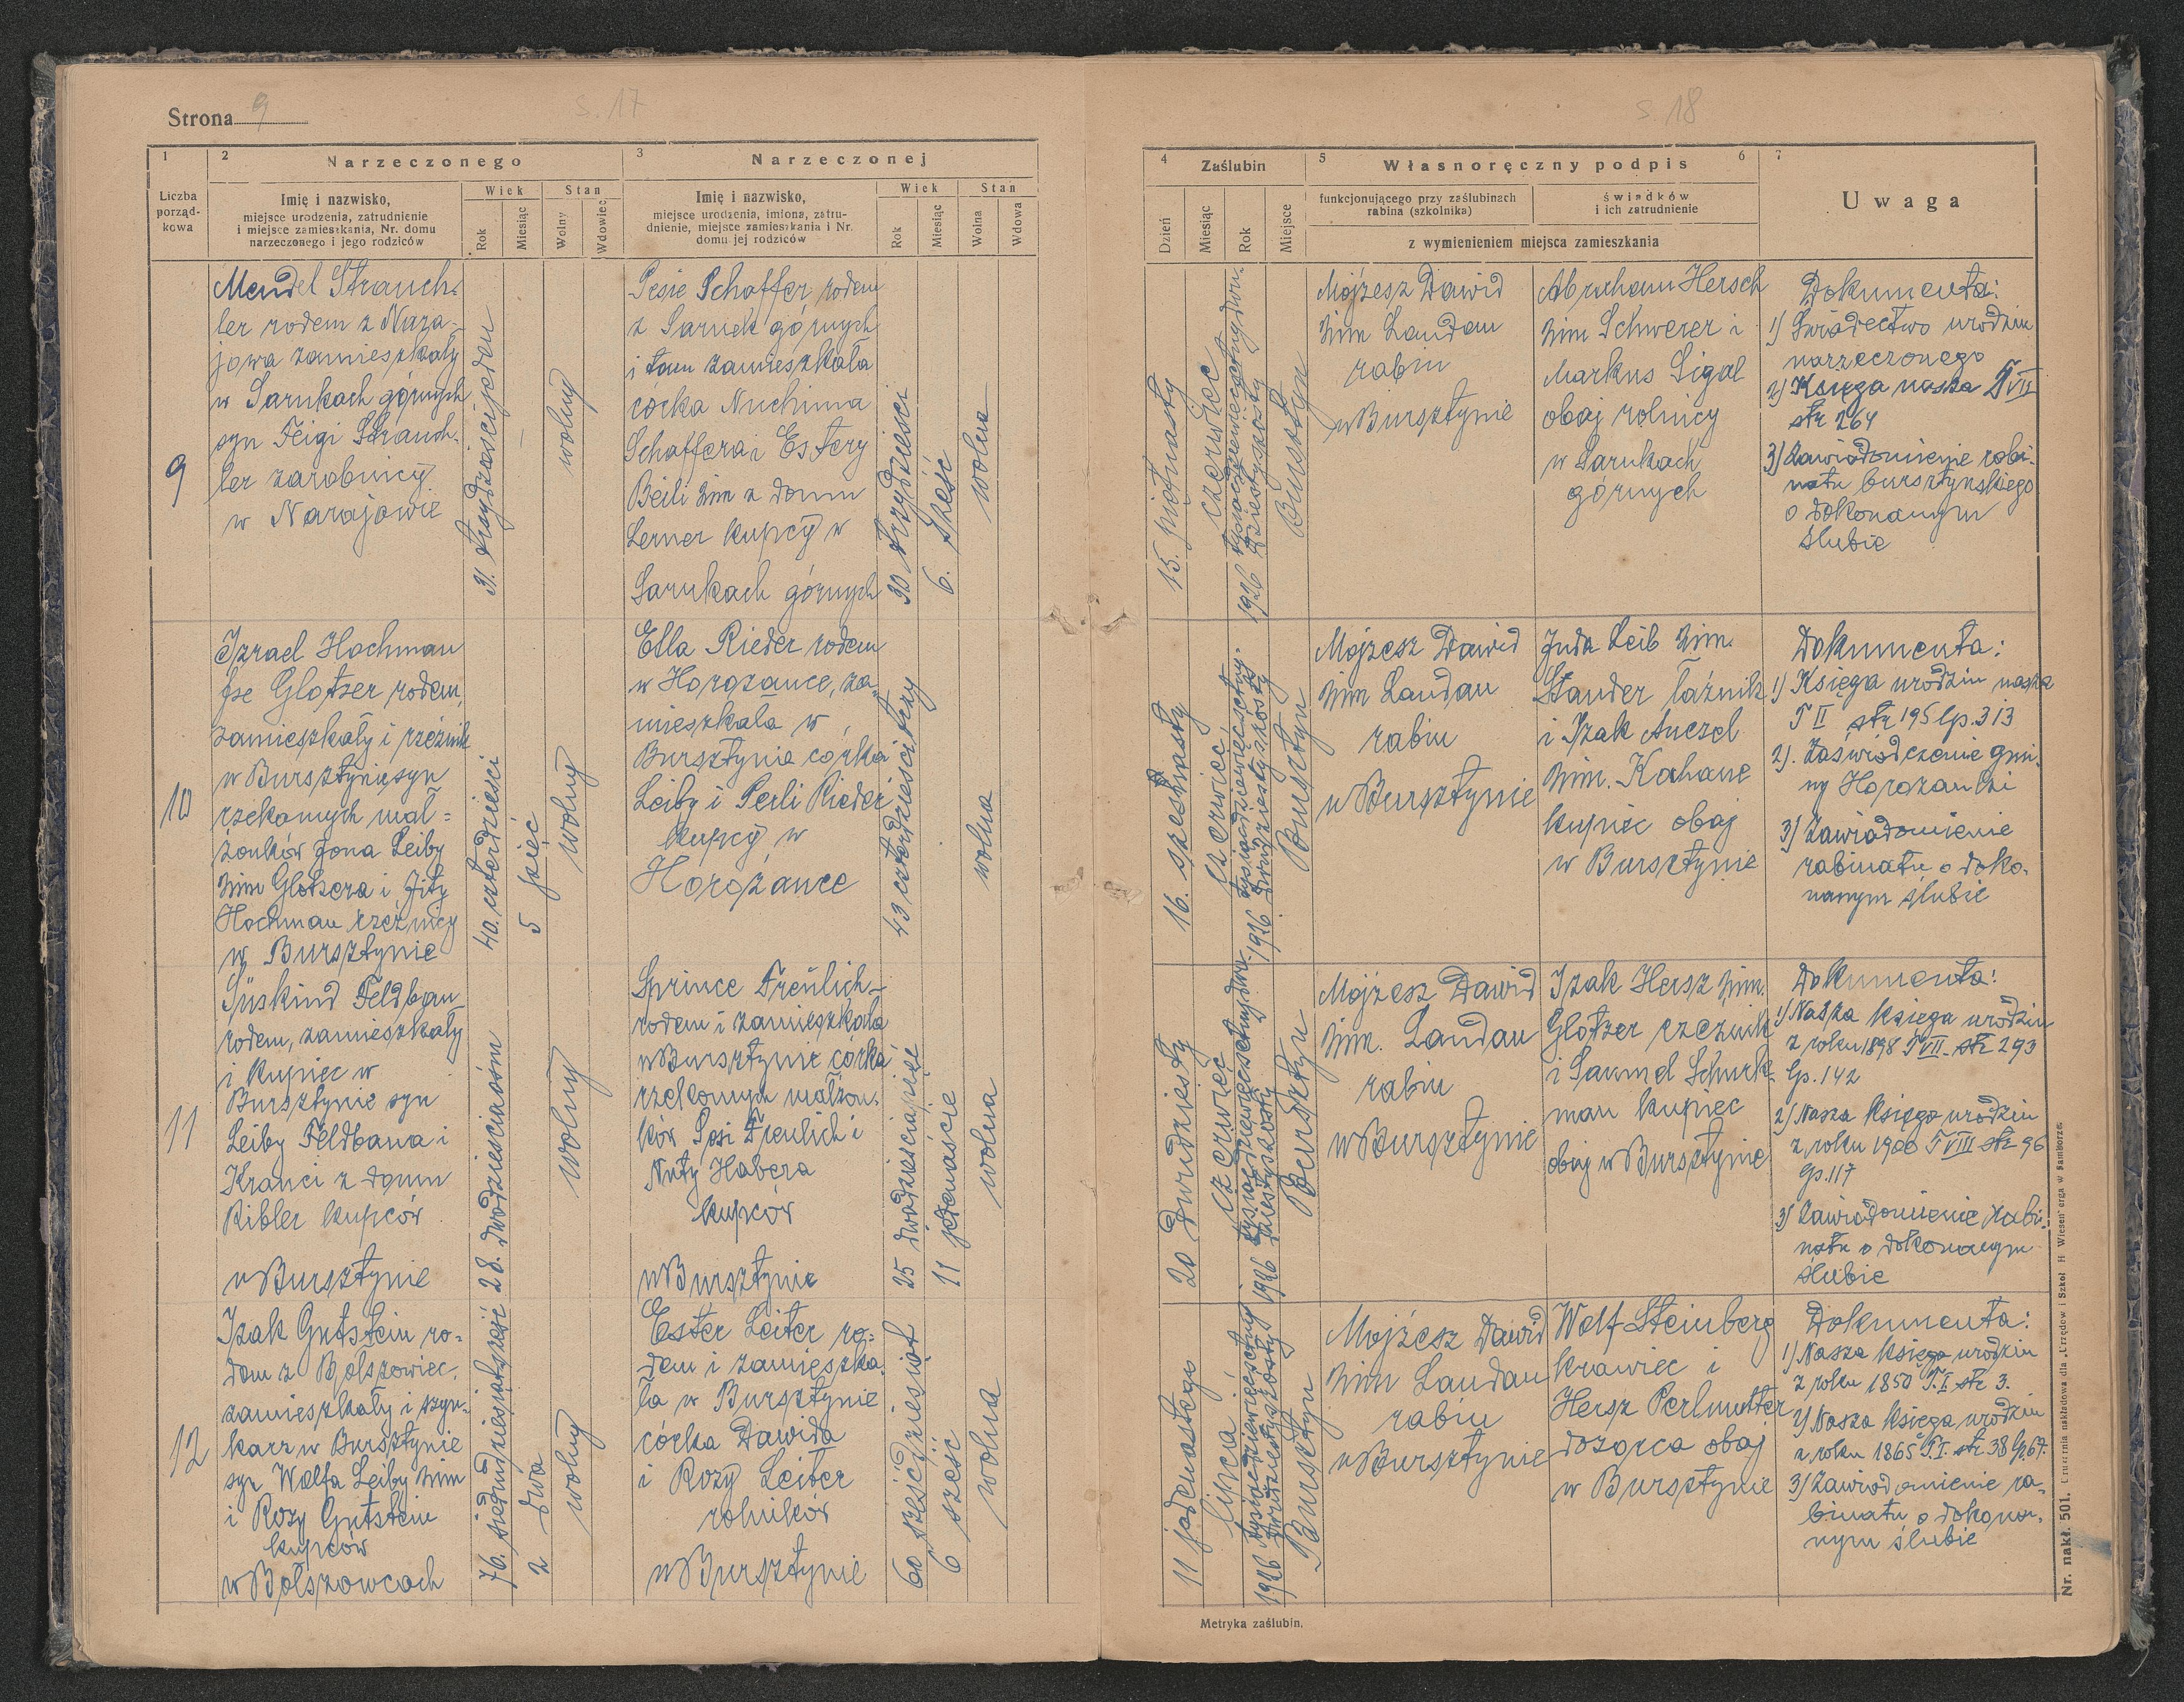 Strona 9
s. 17
1
2 Narzeczonego
3 Narzeczonej
Liczba
porząd-
kowa
Imię i nazwisko,
miejsce urodzenia, zatrudnienie
i miejsce zamieszkania, Nr. domu
narzeczonego i jego rodziców
Wiek
Stan
Rok
Miesiąc
Wolny
Wdowiec
Imię i nazwisko,
miejsce urodzenia, imiona, zatru-
dnienie, miejsce zamieszkania i Nr.
domu jej rodziców
Wiek
Stan
Rok
Miesiąc
Wolna
Wdowa
9
Mendel Strauch-
ler rodem z Nara-
jowa zamieszkały
w Sarnkach górnych
syn Feigi Strauch-
ler zarobnicy
w Narajowie
31. trzydzieścijeden
—
wolny
Pesie Schaffer rodem
z Sarnek górnych
i tam zamieszkała
córka Nuchima
Schaffera i Estery
Beili 2im z domu
Lerner kupcy w
Sarnkach górnych
30 trzydzieści
6. sześć
wolna
10
Izrael Hochman
fse Glotzer rodem,
zamieszkały i rzeźnik
w Bursztynie syn
rzekomych mał=
żonków Jona Leiby
2im Glotzera i Jity
Hochman rzeźnicy
w Bursztynie
40. czterdzieści
5 pięć
wolny
Etla Rieder rodem
w Horożance, za-
mieszkała w
Bursztynie córka
Leiby i Perli Rieder
kupcy w
Horożance
43 czterdzieścitrzy
wolna
11
Süskind Feldbau
rodem, zamieszkały
i kupiec w
Bursztynie syn
Leiby Feldbaua i
Kranci z domu
Ribler kupców
w Bursztynie
28. dwadzieściaośm
wolny
Sprince Freulich
rodem i zamieszkała
w Bursztynie córka
rzekomych małżon-
ków Sosi Freulich i
Nuty Habera
kupców
w Bursztynie
25 dwadzieściapięć
11 jedenaście
wolna
12
Izak Gutstein ro=
dem z Bolszowiec,
zamieszkały i szyn-
karz w Bursztynie
syn Wolfa Leiby 2im
i Rozy Gutstein
kupców
w Bolszowcach
76. siedmdziesiątsześć
2 dwa
wolny
Ester Leiter ro=
dem i zamieszka-
ła w Bursztynie
córka Dawida
i Rozy Leiter
rolników
w Bursztynie
60 sześćdziesiąt
6 sześć
wolna
s. 18
4 Zaślubin
5 Własnoręczny podpis 6
7 Uwaga
Dzień
Miesiąc
Rok
Miejsce
funkcjonującego przy zaślubinach
rabina (szkolnika)
świadków
i ich zatrudnienie
z wymienieniem miejsca zamieszkania
15. piętnasty
czerwiec
1926 tysiącdziewięćsetnydwu-
dziestyszósty
Bursztyn
Mojżesz Dawid
2im Landau
rabin
w Bursztynie
Abraham Hersch
2im Schwerer i
Markus Sigal
obaj rolnicy
w Sarnkach
górnych
Dokumenta:
1) Świadectwo urodzin
narzeczonego
2) Księga nasza T VII
str 264
3) Zawiadomienie rabi-
natu bursztyńskiego
o dokonanym
ślubie
16. szesnasty
czerwiec
1926. tysiącdziewięćsetny-
dwudziestyszósty
Bursztyn
Mojżesz Dawid
2im Landau
rabin
w Bursztynie
Juda Leib 2im.
Stander łaźnik
i Izak Anczel
2im. Kahane
kupiec obaj
w Bursztynie
Dokumenta:
1) Księga urodzin nasza
T II str 195 lp. 313
2). Zaświadczenie gmi-
ny Horożanki
3) Zawiadomienie
rabinatu o doko-
nanym ślubie
20 dwudziesty
czerwiec
1926 tysiącdziewięćsetnydwu-
dziestyszósty
Bursztyn
Mojżesz Dawid
2im. Landau
rabin
w Bursztynie
Izak Hersz 2im.
Glotzer rzeźnik
i Samuel Schurk-
man kupiec
obaj w Bursztynie
Dokumenta:
1) Nasza księga urodzin
z roku 1898 T VII. str 293
lp. 142
2) Nasza księga urodzin
z roku 1900 T VIII str 96
lp. 117
3) Zawiadomienie rabi-
natu o dokonanym
ślubie
11 jedenastego
lipca
1926 tysiącdziewięćsetny
dwudziestyszósty
Bursztyn
Mojżesz Dawid
2im Landau
rabin
w Bursztynie
Wolf Steinberg
krawiec i
Hersz Perlmutter
dozorca obaj
w Bursztynie
Dokumenta:
1) Nasza księga urodzin
z roku 1850 T. I. str 3.
2) Nasza księga urodzin
z roku 1865 T. I. str. 38 lp. 67.
3) Zawiadomienie ra-
binatu o dokona-
nym ślubie
Metryka zaślubin.
Nr. nakł. 501. Drukarnia nakładowa dla Urzędów i Szkół H Wiesenberga w Samborze.